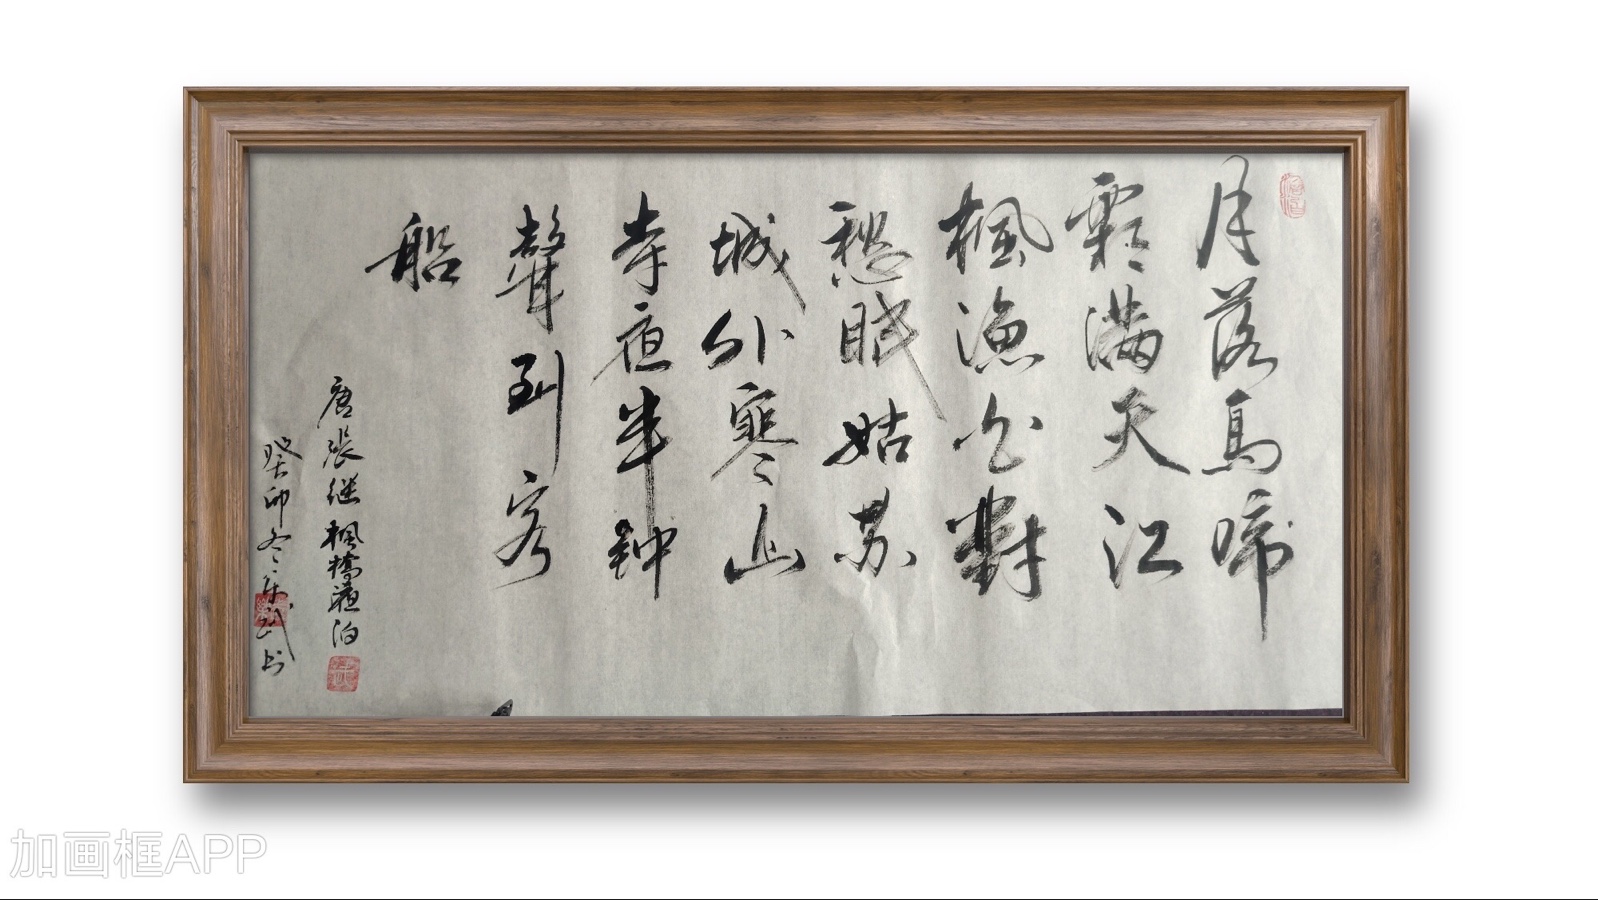 月落烏啼
霜满天江
楓漁火對
愁眠姑苏
城外寒山
寺夜半钟
聲到客
船
唐張继楓橋夜泊
癸卯冬
书
加画框APP